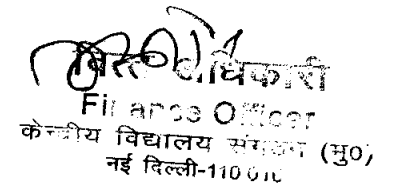 वित्त अधिकारी
Finance Officer
केन्द्रीय विद्यालय संगठन (मु0)
नई दिल्ली-110 016